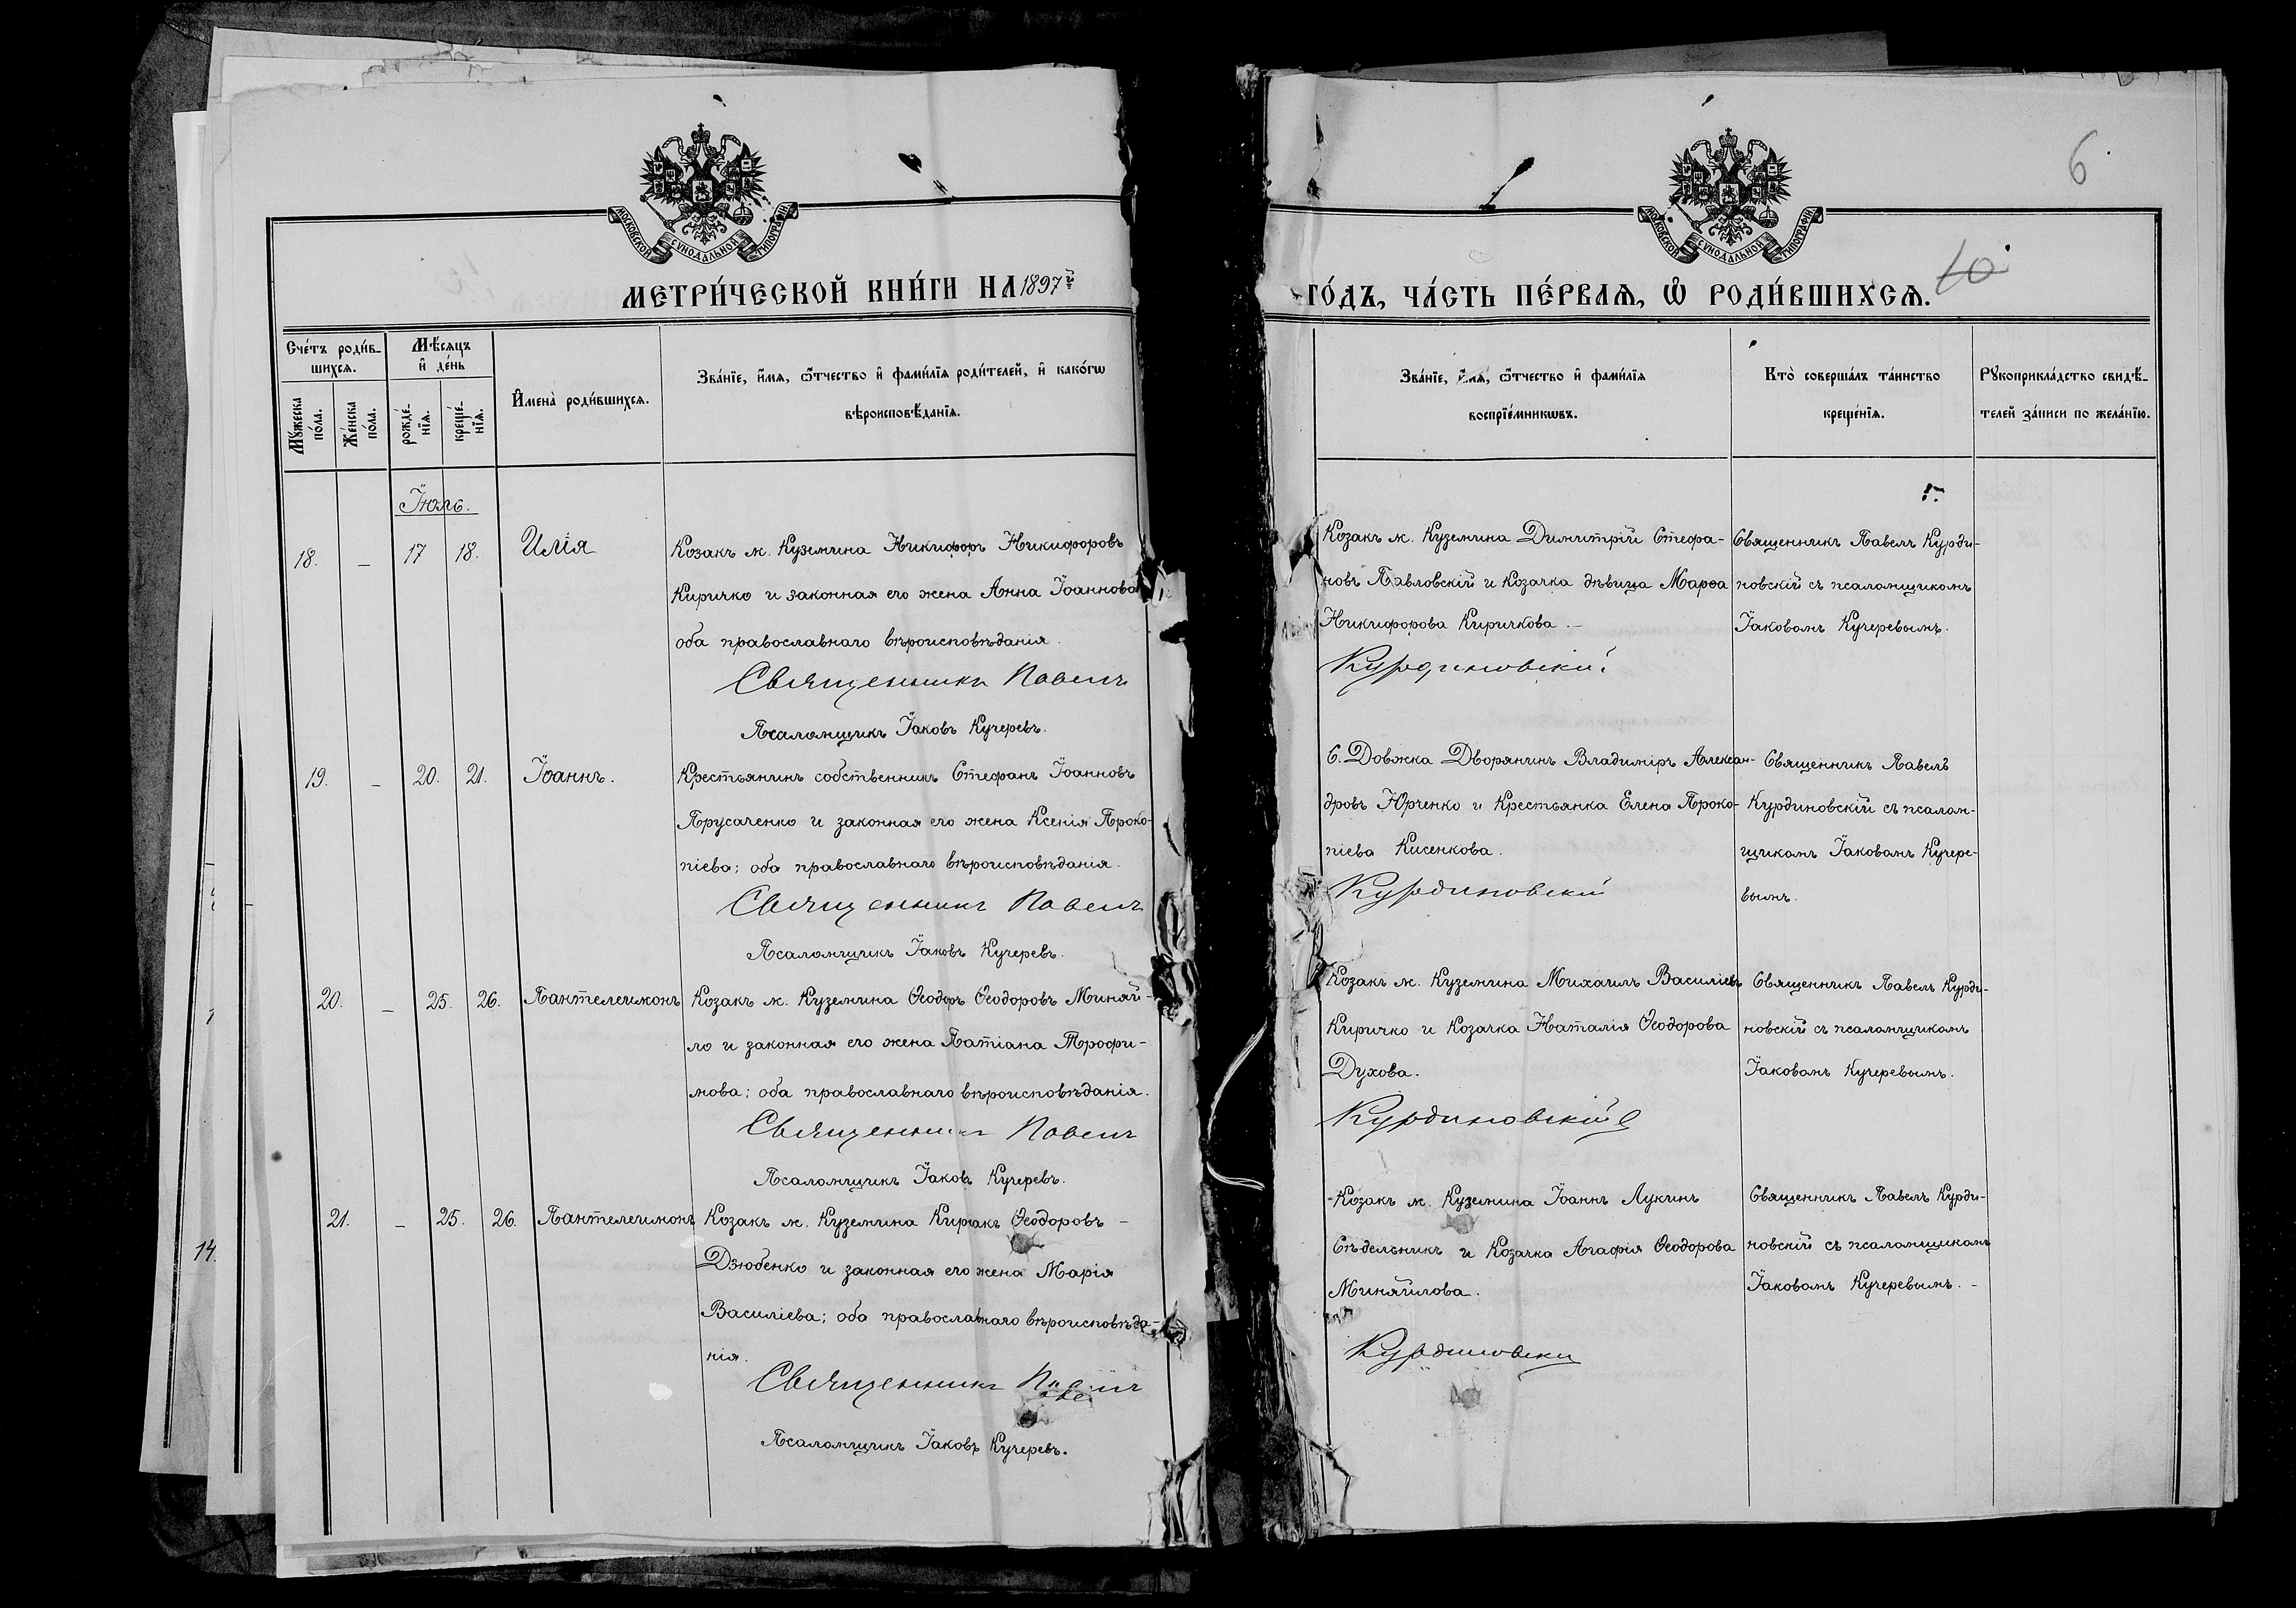 6.
МОСКОВСКОЙ СѴНОДАЛЬНОЙ ТИПОГРАФІИ
МОСКОВСКОЙ СѴНОДАЛЬНОЙ ТИПОГРАФІИ
МЕТРИ́ЧЕСКОЙ КНИ́ГИ НА 1897й
ГО́ДЪ, ЧА́СТЬ ПЕ́РВАЯ, Ѡ РОДИ́ВШИХСЯ.
10
Сче́тъ роди́в-
шихся.
Мꙋжеска по́ла.
Же́нска по́ла.
Мѣ́сяцъ
и де́нь
рожде́-
нїя.
креще́-
нїя.
Имена̀ роди́вшихся.
Зва́нїе, и́мя, ѻ́тчество и фами́лїя роди́телей, и како́гѡ
вѣроисповѣ́данїя.
Зва́нїе, и́мя, ѻ́тчество и фами́лїя
воспрїе́мникѡвъ.
Кто̀ соверша́лъ та́инство
креще́нїя.
Рꙋкоприкла́дство свидѣ́-
телей за́писи по жела́нїю.
Їюль.
18. – 17 18. Илія
Козакъ м. Куземина Никифоръ Никифоровъ
Киричко и законная его жена Анна Їоаннова
оба православнаго вѣроисповѣданія.
Священникъ Павелъ
Псаломщикъ Їаковъ Кучеревъ.
Козакъ м. Куземина Димитрій Стефа-
новъ Павловскій и Козачка дѣвица Марѳа
Никифорова Киричкова. –
Курдиновскій
Священникъ Павелъ Курди-
новскій съ псаломщикомъ
Їаковомъ Кучеревымъ.
19. – 20. 21. Їоаннъ.
Крестьянинъ собственникъ Стефанъ Їоанновъ
Прусаченко и законная его жена Ксенія Проко-
піева; оба православнаго вѣроисповѣданія.
Священникъ Павелъ
Псаломщикъ Їаковъ Кучеревъ.
С. Довжка Дворянинъ Владиміръ Алексан-
дровъ Юрченко и Крестьянка Елена Проко-
піева Кисенкова.
Курдиновскій
Священникъ Павелъ
Курдиновскій съ псалом-
щикомъ Їаковомъ Кучере-
вымъ.
20. – 25. 26. Пантелеимонъ
Козакъ м. Куземина Ѳеодоръ Ѳеодоровъ Миняй-
ло и законная его жена Татіана Трофи-
мова; оба православнаго вѣроисповѣданія.
Священникъ Павелъ
Псаломщикъ Їаковъ Кучеревъ.
Козакъ м. Куземина Михаилъ Василіевъ
Киричко и Козачка Наталія Ѳеодорова
Духова.
Курдиновскій
Священникъ Павелъ Курди-
новскій съ псаломщикомъ
Їаковомъ Кучеревымъ.
21. – 25. 26. Пантелеимонъ
Козакъ м. Куземина Киріакъ Ѳеодоровъ –
Дзюбенко и законная его жена Марія
Василіева; оба православнаго вѣроисповѣда-
нія.
Священникъ Павелъ
Псаломщикъ Їаковъ Кучеревъ.
Козакъ м. Куземина Їоаннъ Лукинъ
Сѣдельникъ и Козачка Агафія Ѳеодорова
Миняйлова.
Курдиновскій
Священникъ Павелъ Курди-
новскій съ псаломщикомъ
Їаковомъ Кучеревымъ. –
14.